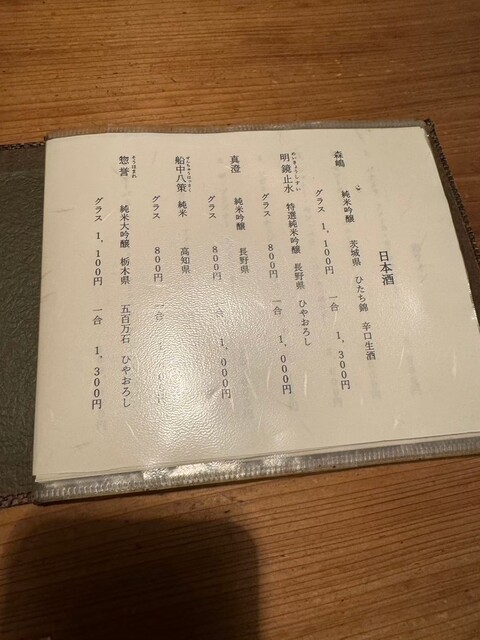 日本酒
森嶋 純米吟醸 茨城県 ひたち錦 辛口生酒
グラス 1,100円 一合 1,300円
めいきょうしすい
明鏡止水 特選純米吟醸 長野県 ひやおろし
グラス 800円 一合 1,000円
真澄 純米吟醸 長野県
グラス 800円 一合 1,000円
せんちゅうはっさく
船中八策 純米 高知県
グラス 800円 一合
そうほまれ
惣誉 純米大吟醸 栃木県 五百万石 ひやおろし
グラス 1,100円 一合 1,300円